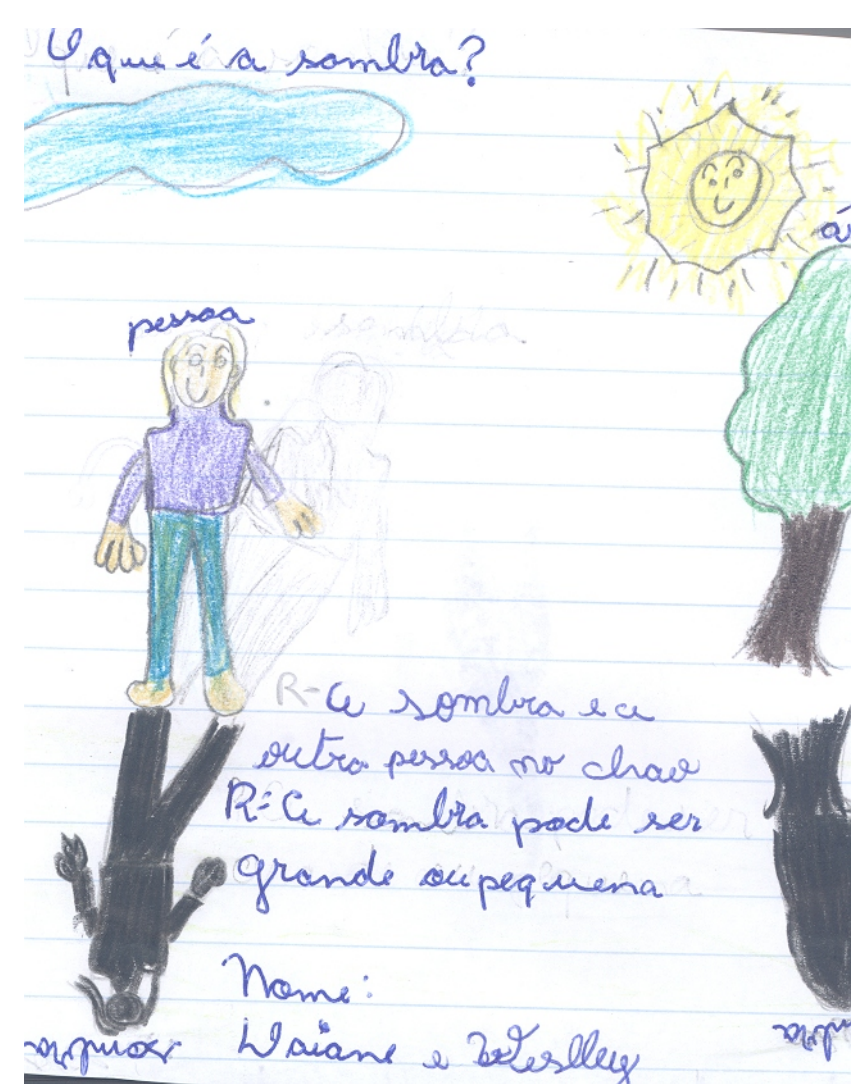 O que é a sombra?
pessoa
R- A sombra e a
outra pessoa no chao
R- A sombra pode ser
grande ou pequena
Nome:
Daiane e Weslley
sombra